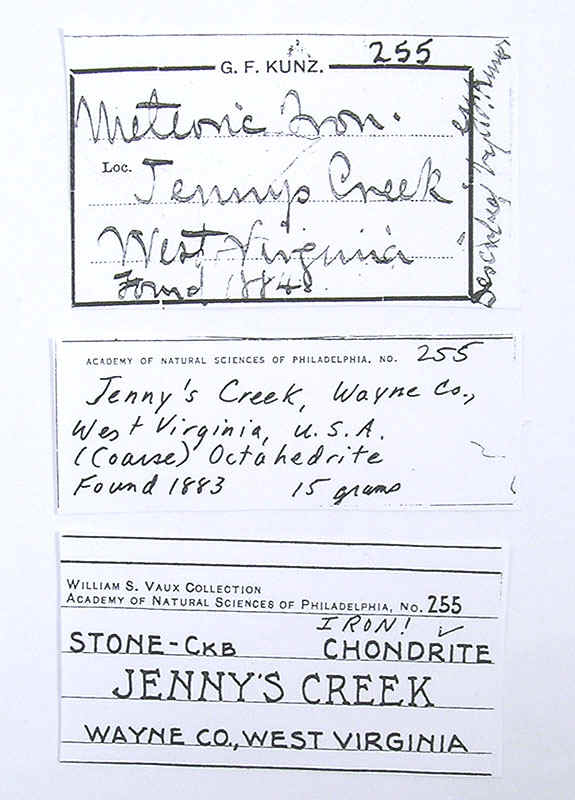 255
G. F. KUNZ.
Meteoric Iron.
Loc. Jennys Creek
West Virginia
Found 1884.
Described by G. F. Kunz
ACADEMY OF NATURAL SCIENCES OF PHILADELPHIA, NO. 255
Jenny's Creek, Wayne Co.,
West Virginia, U.S.A.
(Coarse) Octahedrite
Found 1883 15 grams
WILLIAM S. VAUX COLLECTION
ACADEMY OF NATURAL SCIENCES OF PHILADELPHIA, NO. 255
IRON! ✓
STONE-CKB CHONDRITE
JENNY'S CREEK
WAYNE CO., WEST VIRGINIA